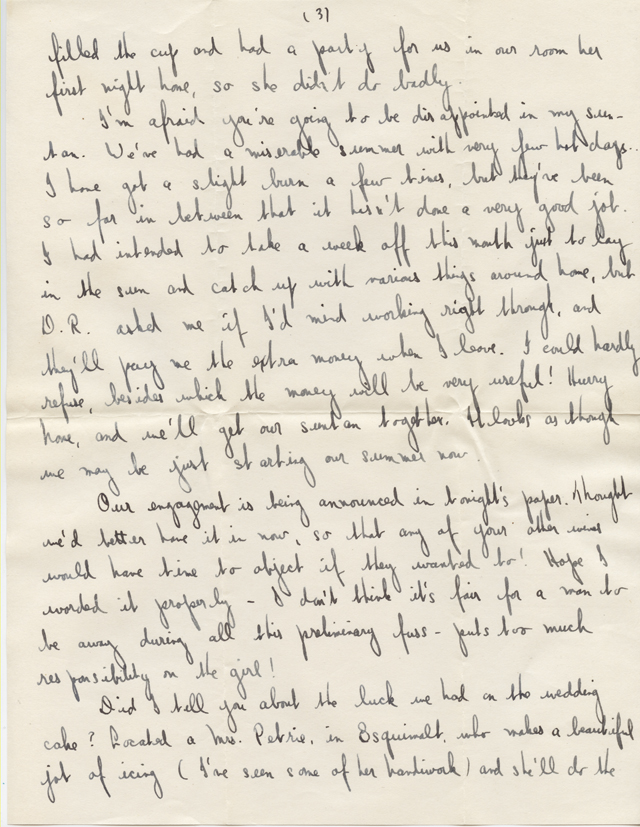 (3)
filled the cup and had a party for us in our room her
first night home, so she didn't do badly.
I'm afraid you're going to be disappointed in my sun-
tan. We've had a miserable summer with very few hot days..
I have got a slight burn a few times, but they've been
so far in between that it hasn't done a very good job.
I had intended to take a week off this month just to lay
in the sun and catch up with various things around home, but
D.R. asked me if I'd mind working right through, and
they'll pay me the extra money when I leave. I could hardly
refuse, besides which the money will be very useful! Hurry
home, and we'll get our suntan together. It looks as though
we may be just starting our summer now.
Our engagement is being announced in tonight's paper. Thought
we'd better have it in now, so that any of your other wives
would have time to object if they wanted to! Hope I
worded it properly - I don't think it's fair for a man to
be away during all this preliminary fuss - puts too much
responsibility on the girl!
Did I tell you about the luck we had on the wedding
cake? Located a Mrs. Petrie, in Esquimalt, who makes a beautiful
job of icing (I've seen some of her handiwork) and she'll do the